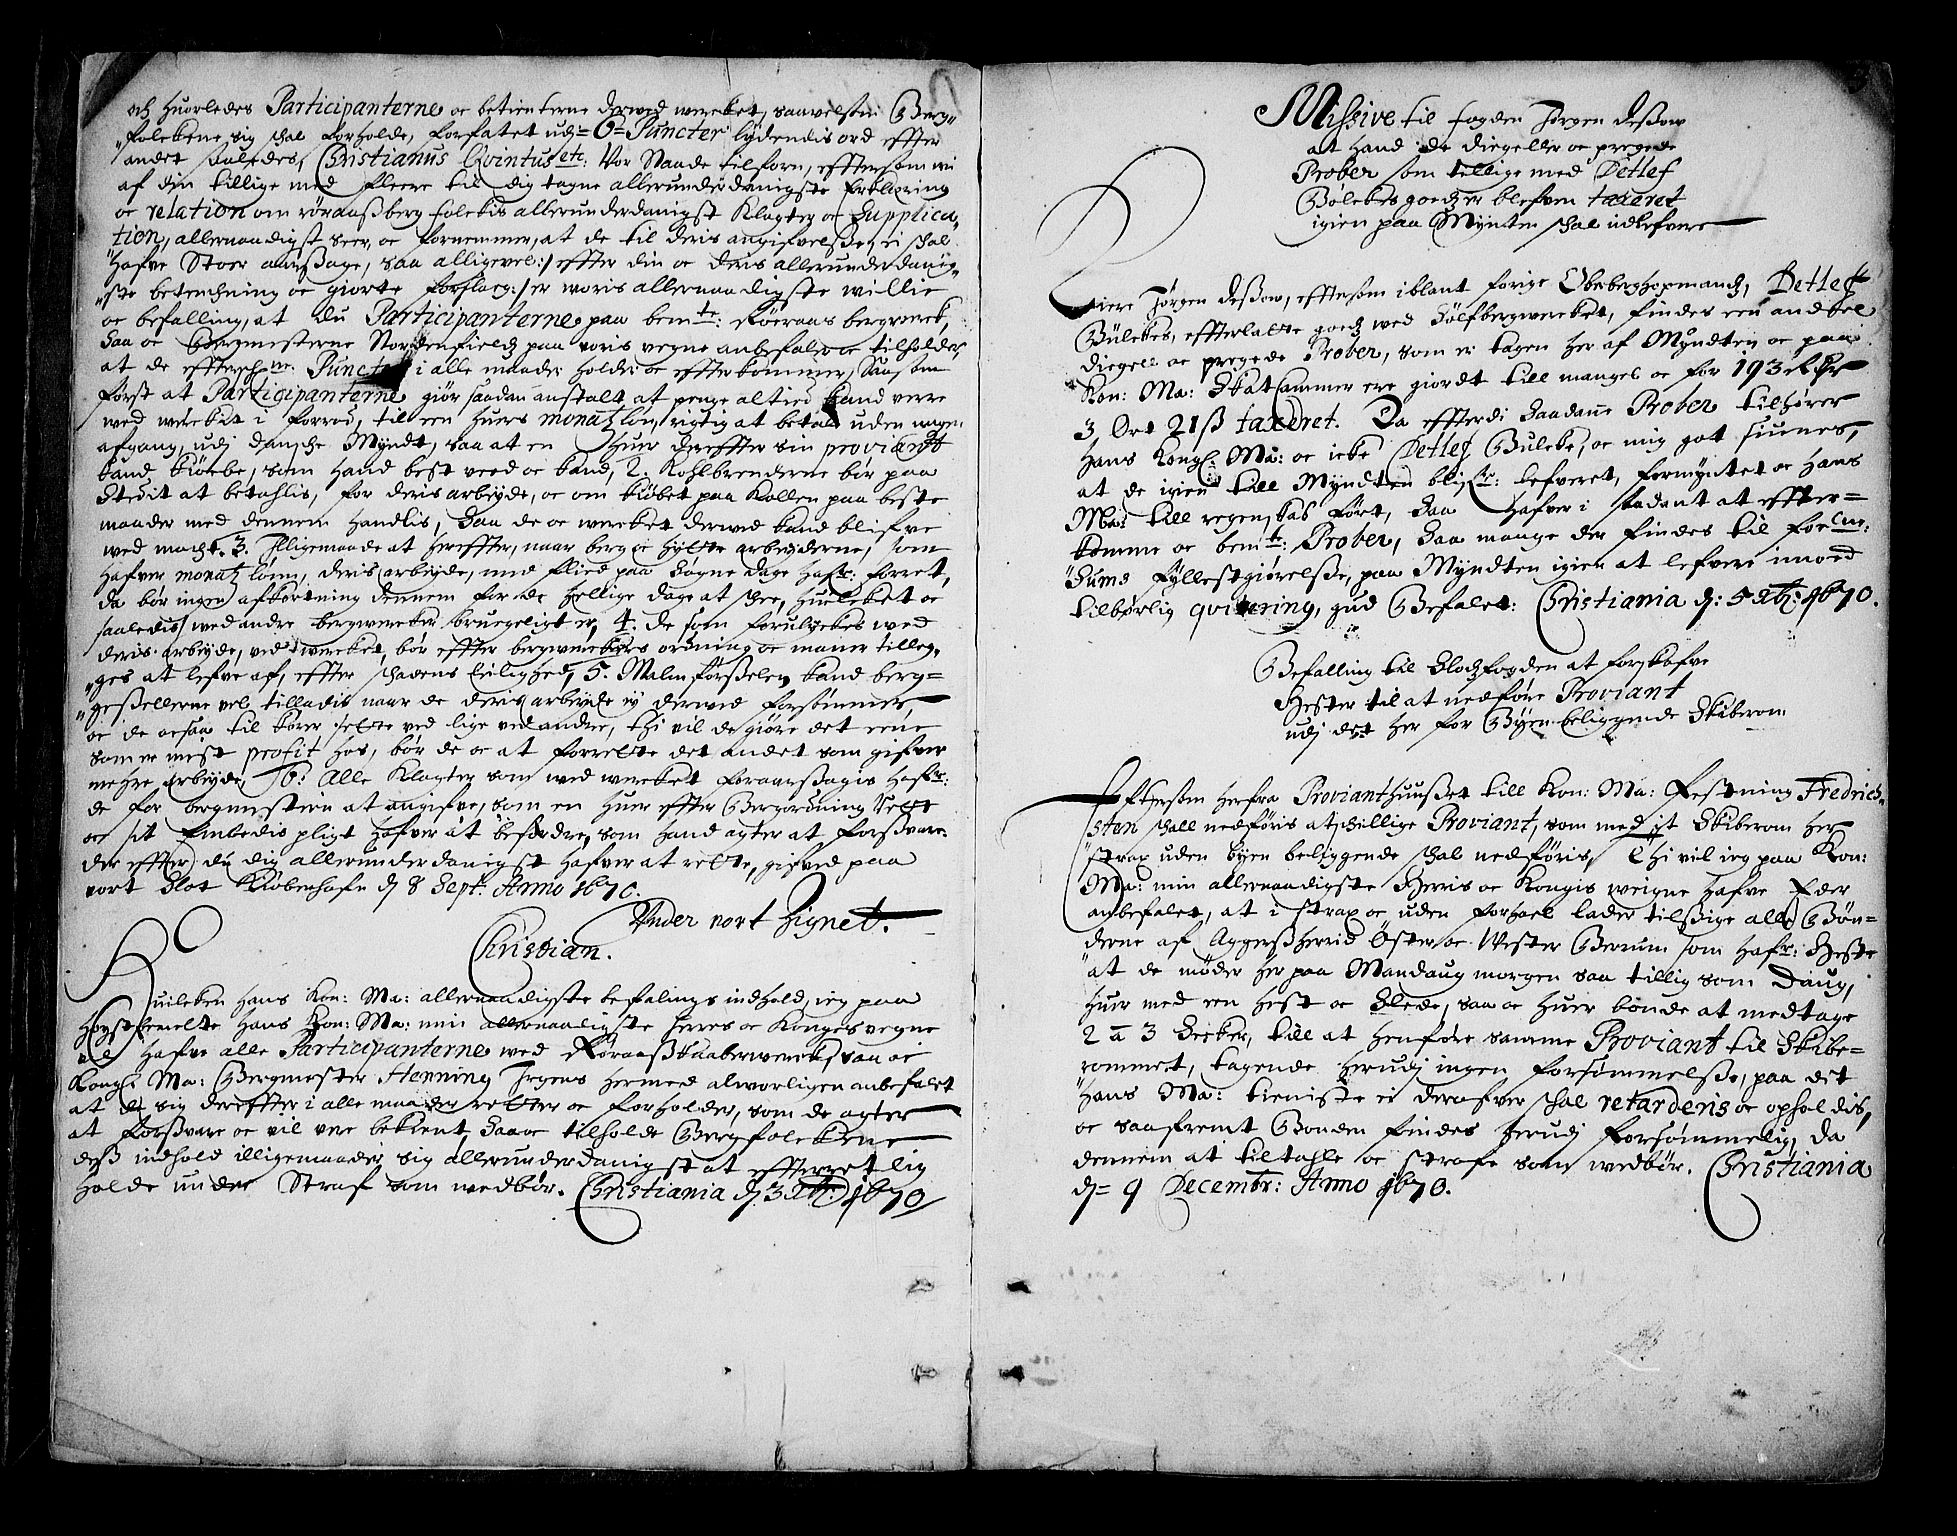 och huorledes Participanterne oc betienterne derwed wercket, saavelsom Berg„
„folckene sig skal forholde, forfatet udj 6 Puncter lydendis ord effter
andet saaledes, Christianus Qvintus etc: Vor Naade tilforn, efftersom wi
af din tillige med fleere til dig tagne allerunderdanigste Erklæring
oc relation om röraaßberg folckis allerunderdanigst Klagter oc Supplica„
tion, allernaadigst seer, oc fornemmer, at de til deris angifvelße, ei skal
hafve Stoer aarsage, saa alligevel :/ effter din oc deris allerunderdanig„
„ste betenchning oc giorte forslag :/ er woris allernaadigste willie
oc befalling, at du Participanterne paa bemte: Röeraas bergwerck,
saa oc Bergmesterne Nordenfields paa voris vegne anbefaler oc tilholder,
at de effterschrne: Puncter i alle maader holder oc effterkommer, Saasom
först at Participanterne giör saadan anstalt at penge altied kand verre
wed wercket i forrod, til een huers monatz lön, rigtig at betale uden nogen
afgang, udj dansche Myndt, saa at en huer dereffter sin proviant
kand kiöbe, som hand best veed oc kand, 2. Kohlbrenderne bör paa
Stedit at betahlis, for deris arbeyde, oc om kiöbet paa Kollen paa beste
maader med dennem handlis, saa de oc wercket derwed kand blifve
wed macht. 3. Illigemaade at hereffter, naar berg oc hytte arbeyderne, som
hafver monatz lönn, deris arbeyde, med flied paa Sögne dage hafr: forret,
da bör ingen afkortning dennem for de hellige dage at skee, huilcket oc
saaledis wed andre bergwercker bruegeligt er, 4. de som forulyckes wed
deris arbeyde, ved wercket, bör effter bergwerckers ordning oc maner tilleg„
„ges at lefve af, effter skadens leilighed, 5. Malmförßelen kand berg=
„geßellerne vel tilladis naar de deris arbeyde ey derwed forsömmer,
oc de ocsaa til körer selfve ved lige ved andre, thi vil de giöre det eene
som er mest profit hos, bör de oc at forrette det andet som gifver
mehre arbeyde, 6: Alle Klagter som wed wercket foraarßagis hafr:
de for bergmestern at angifve, som en huer effter Bergordning Rett
oc sit Embedis pligt hafver at befordre, som hand agter at forsvare.
der effter du dig allerunderdanigst hafver at rette, gifved paa
vort Slot Kiöbenhafn dj 8 Sept. Anno 1670.
Under vort Zignet.
Christian.
Huilcken hans Kon: Ma: allernaadigste befalings indhold, ieg paa
Höystbemelte hans Kon: Ma: min allernaadigste herres oc Konges vegne
vil hafve alle Participanterne wed Röraaß kaaberwerck, saa oc
Kongl: Ma: Bergmester Henning Irgens hermed alvorligen anbefalet
at de sig dereffter i alle maader retter oc forholder, som de agter
at forßvare oc vil vere bekient, saa oc tilholde Bergfolckene
deß indhold illigemaader sig allerunderdanigst at effterretlig
holde under Straf som wedbör. Christiania dj 3 Xbr: 1670/
Missive til fogden Jörgen Deßow
at hand de diegeller oc pregede
Prober som tillige med Detlef
Bölckes goedz er blefven taxeret
igien paa Mynten skal udlefvere
Kiere Jörgen Deßow, efftersom iblant forige Oberberghopmands, Detlef
Bülckes, effterlatte goedz wed Sölfbergwercket, findes een andeel
diegell oc pregede Prober, som er tagen her af Myndten oc paa
Kon: Ma: Skatkammer ere giordt till mangel oc for 193 Rdr
3 Ort 21ß taxeret. Da effterdi saadanne Prober tilhörer
hans Kongl: Ma: oc icke Detlef Buleke, oc mig got siunes,
at de igien till Myndten blifr: lefveret, formyntet oc hans
Ma: till regenskab fört, saa hafver i sadant at effter=
komme oc bemte: Prober, saa mange der findes til forne:
Sums fyllestgiörelße, paa Myndten igien at lefvere imoed
tilbörlig qvitering, gud Befalet: Christiania dj: 5 Xbr: 1670.
Befalling til Slodzfogden at forskafve
Hester til at nedföre Proviant
udj det her for Byen beliggende Skiberom
Efftersom herfra Provianthuußet till Kon: Ma: Festning Fredrich„
sten skall nedföris atskillige Proviant, som med et Skiberom her
strax uden byen beliggende skal nedföris, Thi vil ieg paa Kon:
Ma: min allernaadigste Herris oc Kongis weigne hafve Eder
anbefalet, at i strax oc uden forhoel lader tilßige alle Bön=
derne af Aggerßherrid Öster oc Wester Berum som hafr: Heste
at de möder her paa Mandaug morgen saa tillig som Daug,
huer med een hest oc Slede, saa oc huer bonde at medtage
2 à 3 Secker, till at henföre samme Proviant til Skibe=
rommet, tagende herudj ingen forsömmelße, paa det
hans Ma: tieniste ei derofver skal retarderis oc opholdis,
oc saafremt Bonden findes herudj forsömmelig, da
dennem at tiltahle oc strafe som wedbör. Christiania
dj= 9 Decembr: Anno 1670.